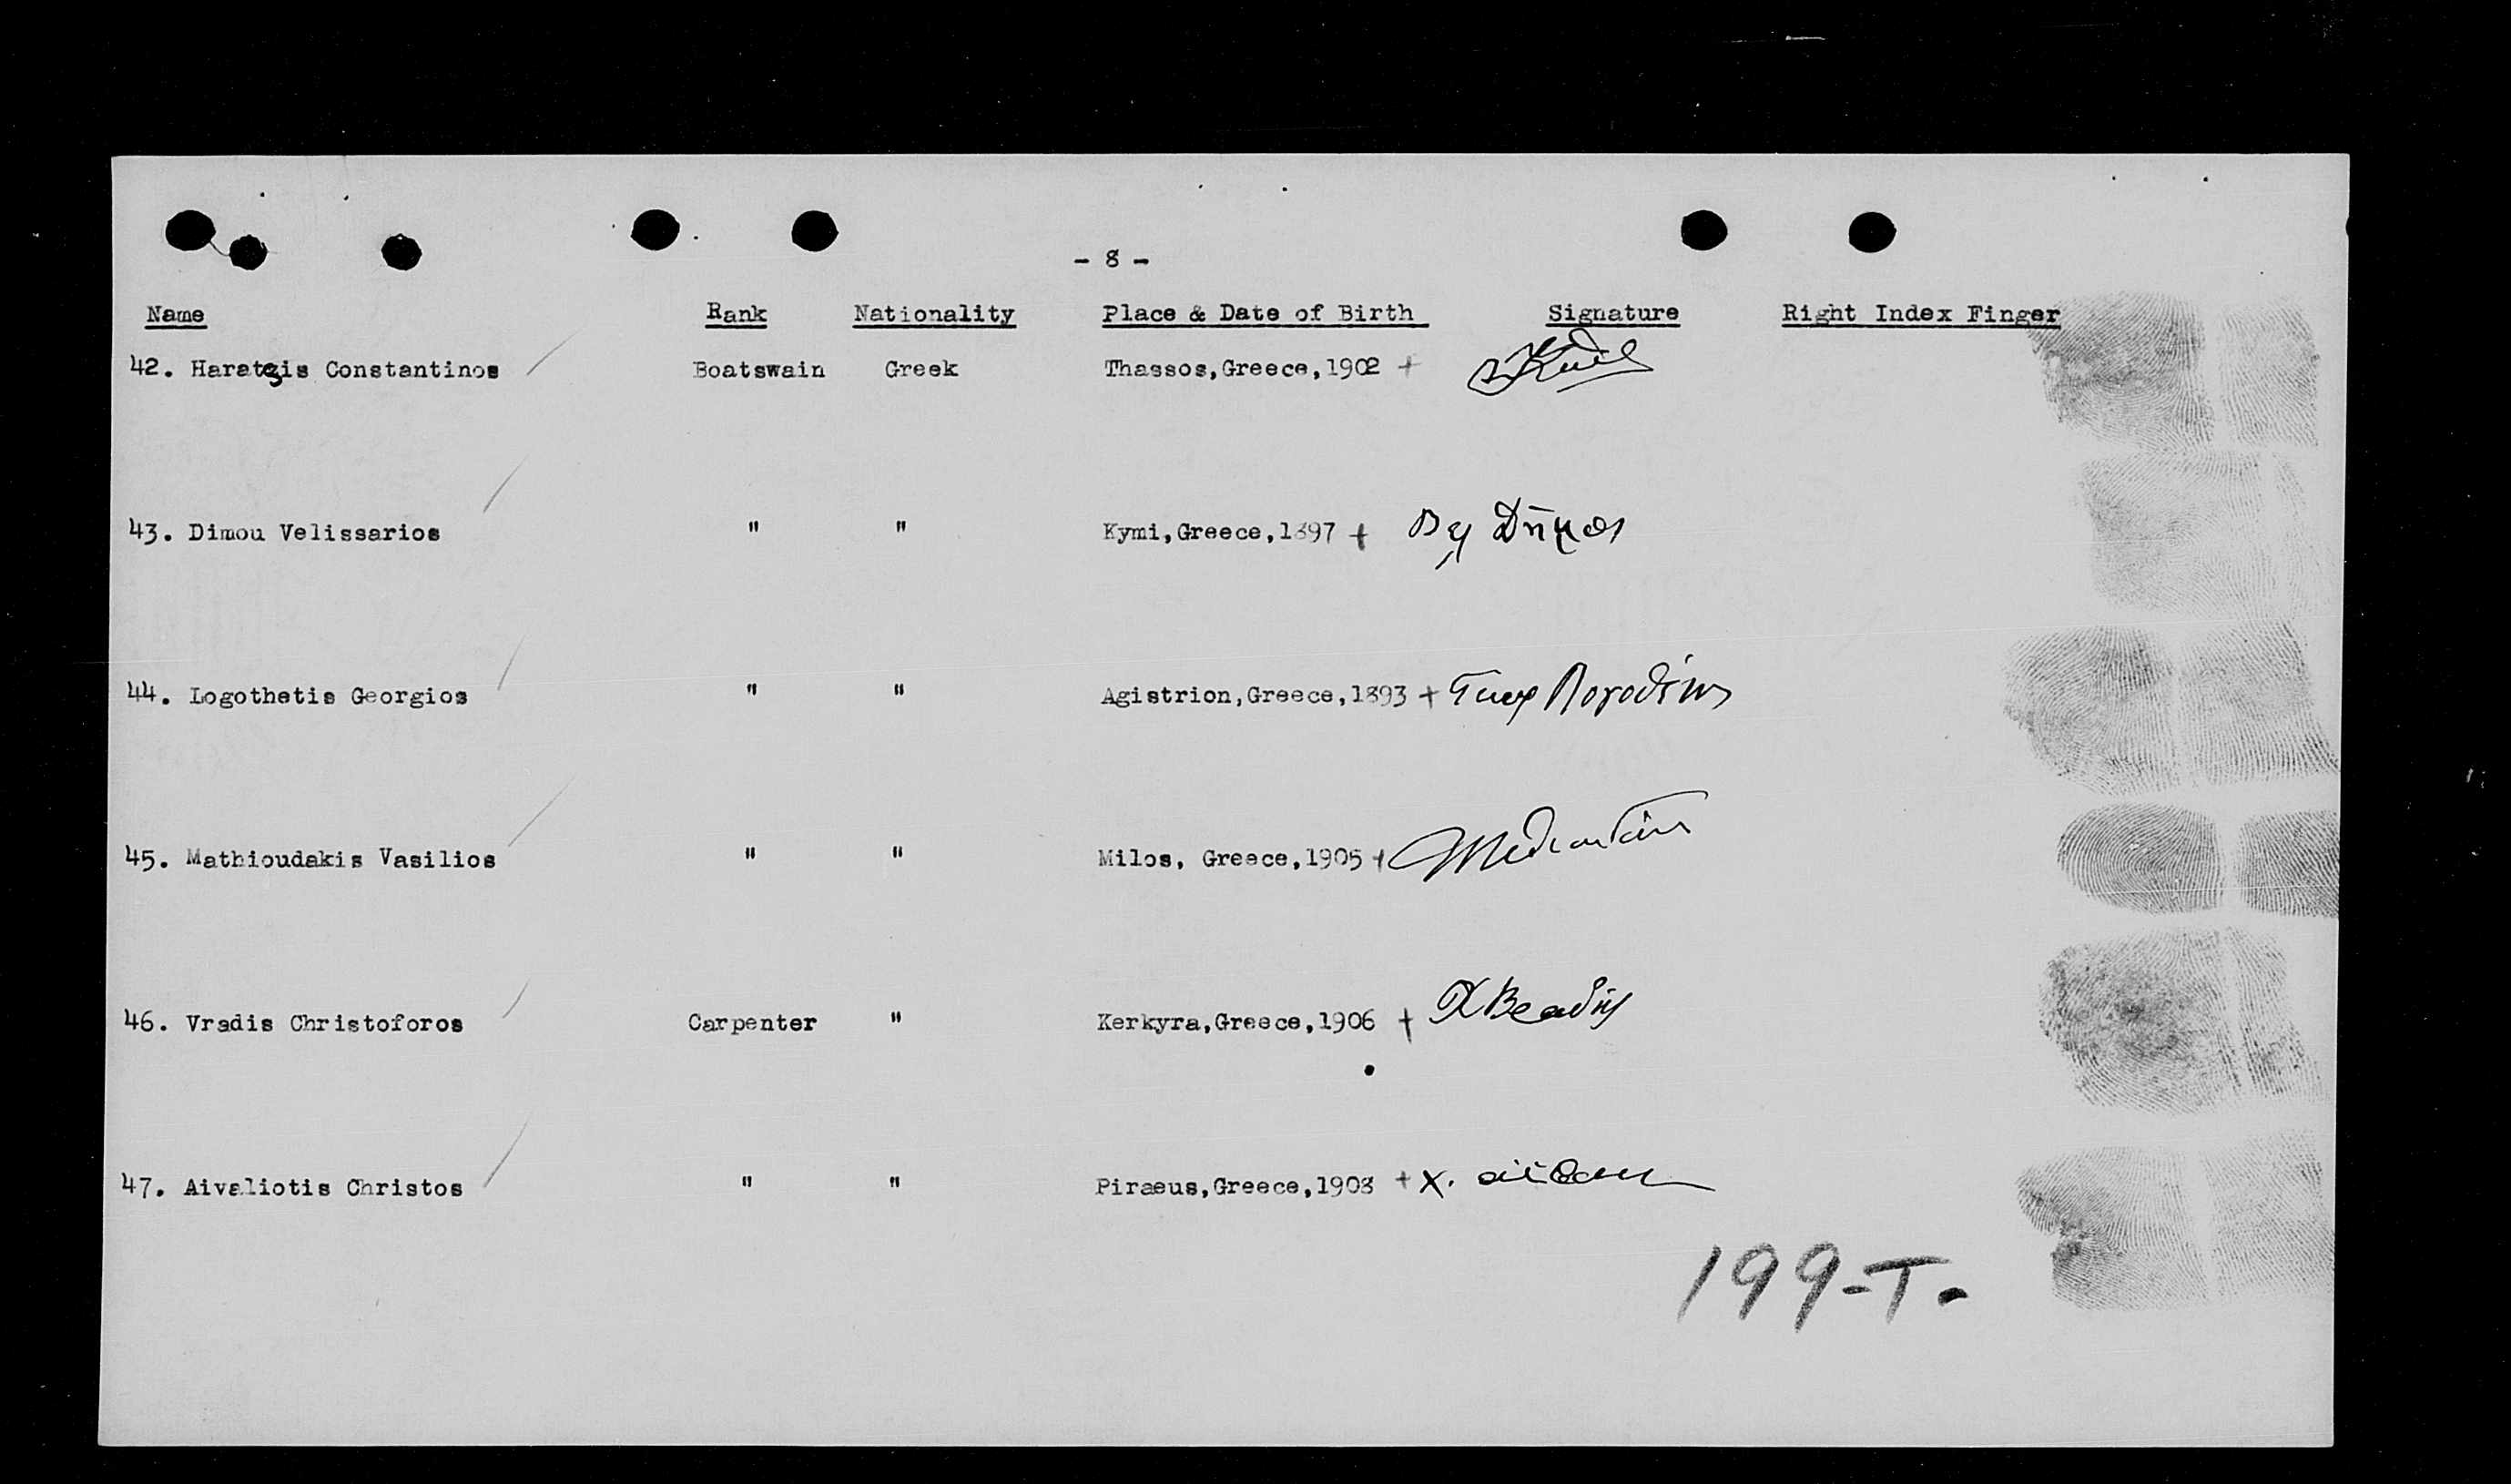 - 8 -
Name Rank Nationality Place & Date of Birth Signature Right Index Finger
42. Haratsis Constantinos Boatswain Greek Thassos,Greece,1902 +
43. Dimou Velissarios " " Kymi,Greece,1897 + Βελ Δήμου
44. Logothetis Georgios " " Agistrion,Greece,1893 + Γεωρ Λογοθέτης
45. Mathioudakis Vasilios " " Milos, Greece,1905 +
46. Vradis Christoforos Carpenter " Kerkyra,Greece,1906 + Χ Βραδής
47. Aivaliotis Christos " " Piraeus,Greece,1908 + Χ.
199-T.